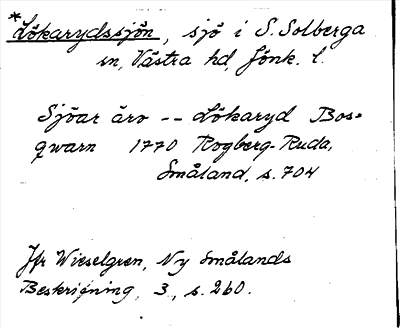 *Lökarydssjön, sjö i S. Solberga
sn, Västra hd, Jönk. l.
Sjöar äro -- Lökaryd Bos-
qwarn 1770 Rogberg-Ruda,
Småland, s. 704
Jfr Wieselgren, Ny Smålands
Beskrifning, 3, s. 260.